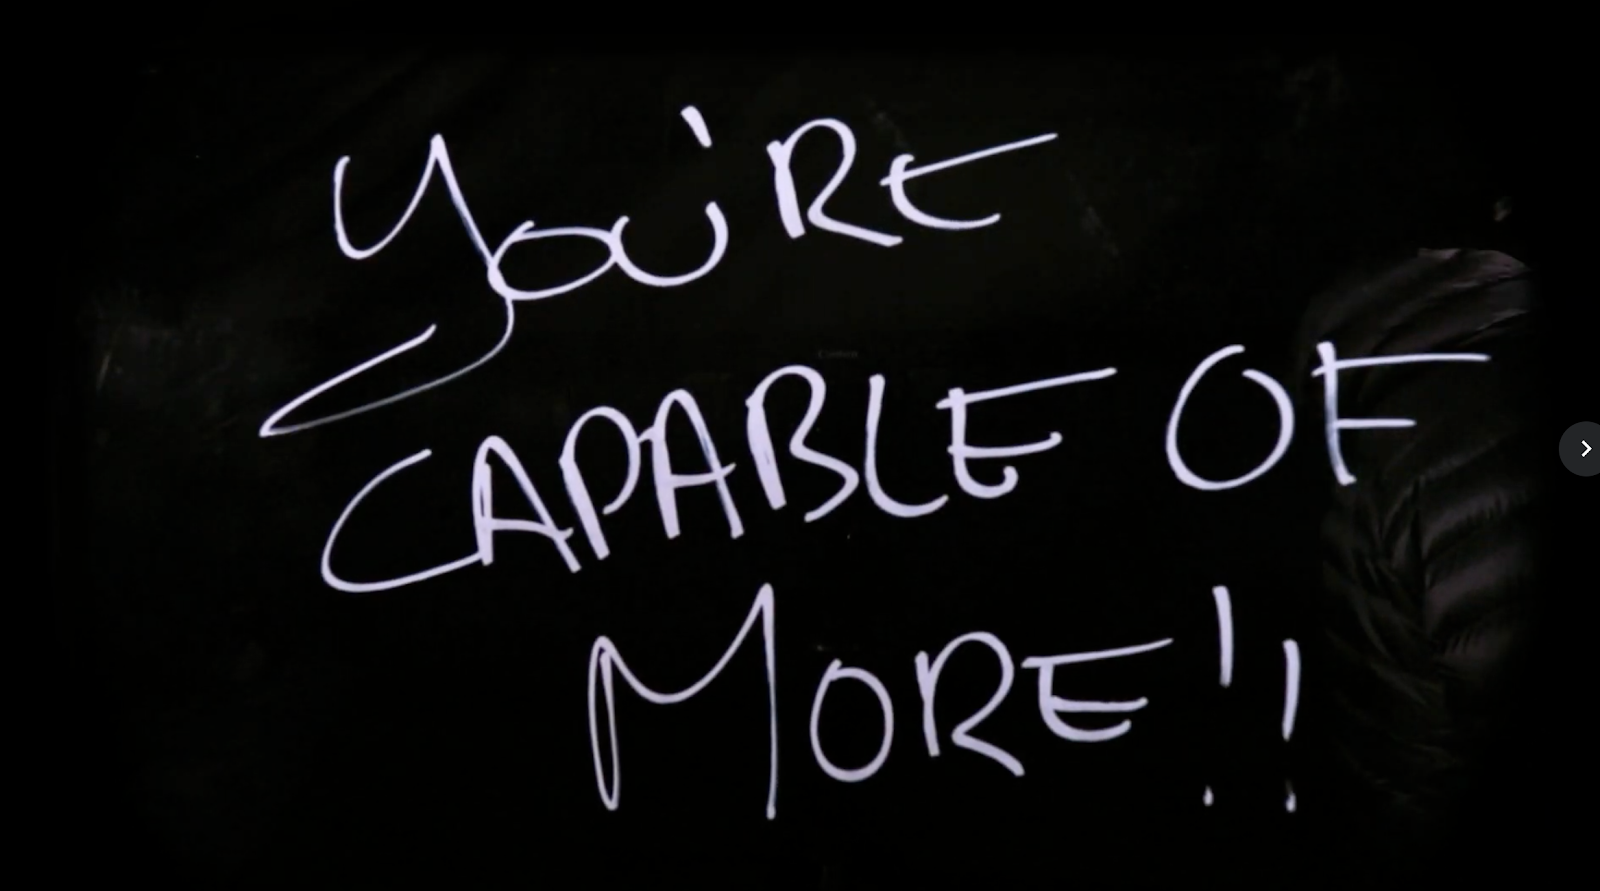 You'RE
CAPABLE OF
MORE!!